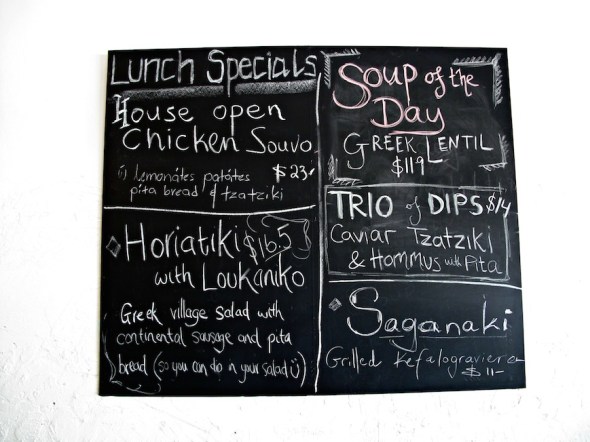 Lunch Specials
House open
Chicken Souvo
lemonátes patátes $23-
pita bread & tzatziki
Horiatiki $16.5
with Loukaniko
Greek village salad with
continental sausage and pita
bread (so you can do in your salad Ü)
Soup of the
Day
GREEK LENTIL
$119
TRIO of DIPS $14
Caviar Tzatziki
& Hommus with Pita
Saganaki
Grilled Kefalograviera
$11-